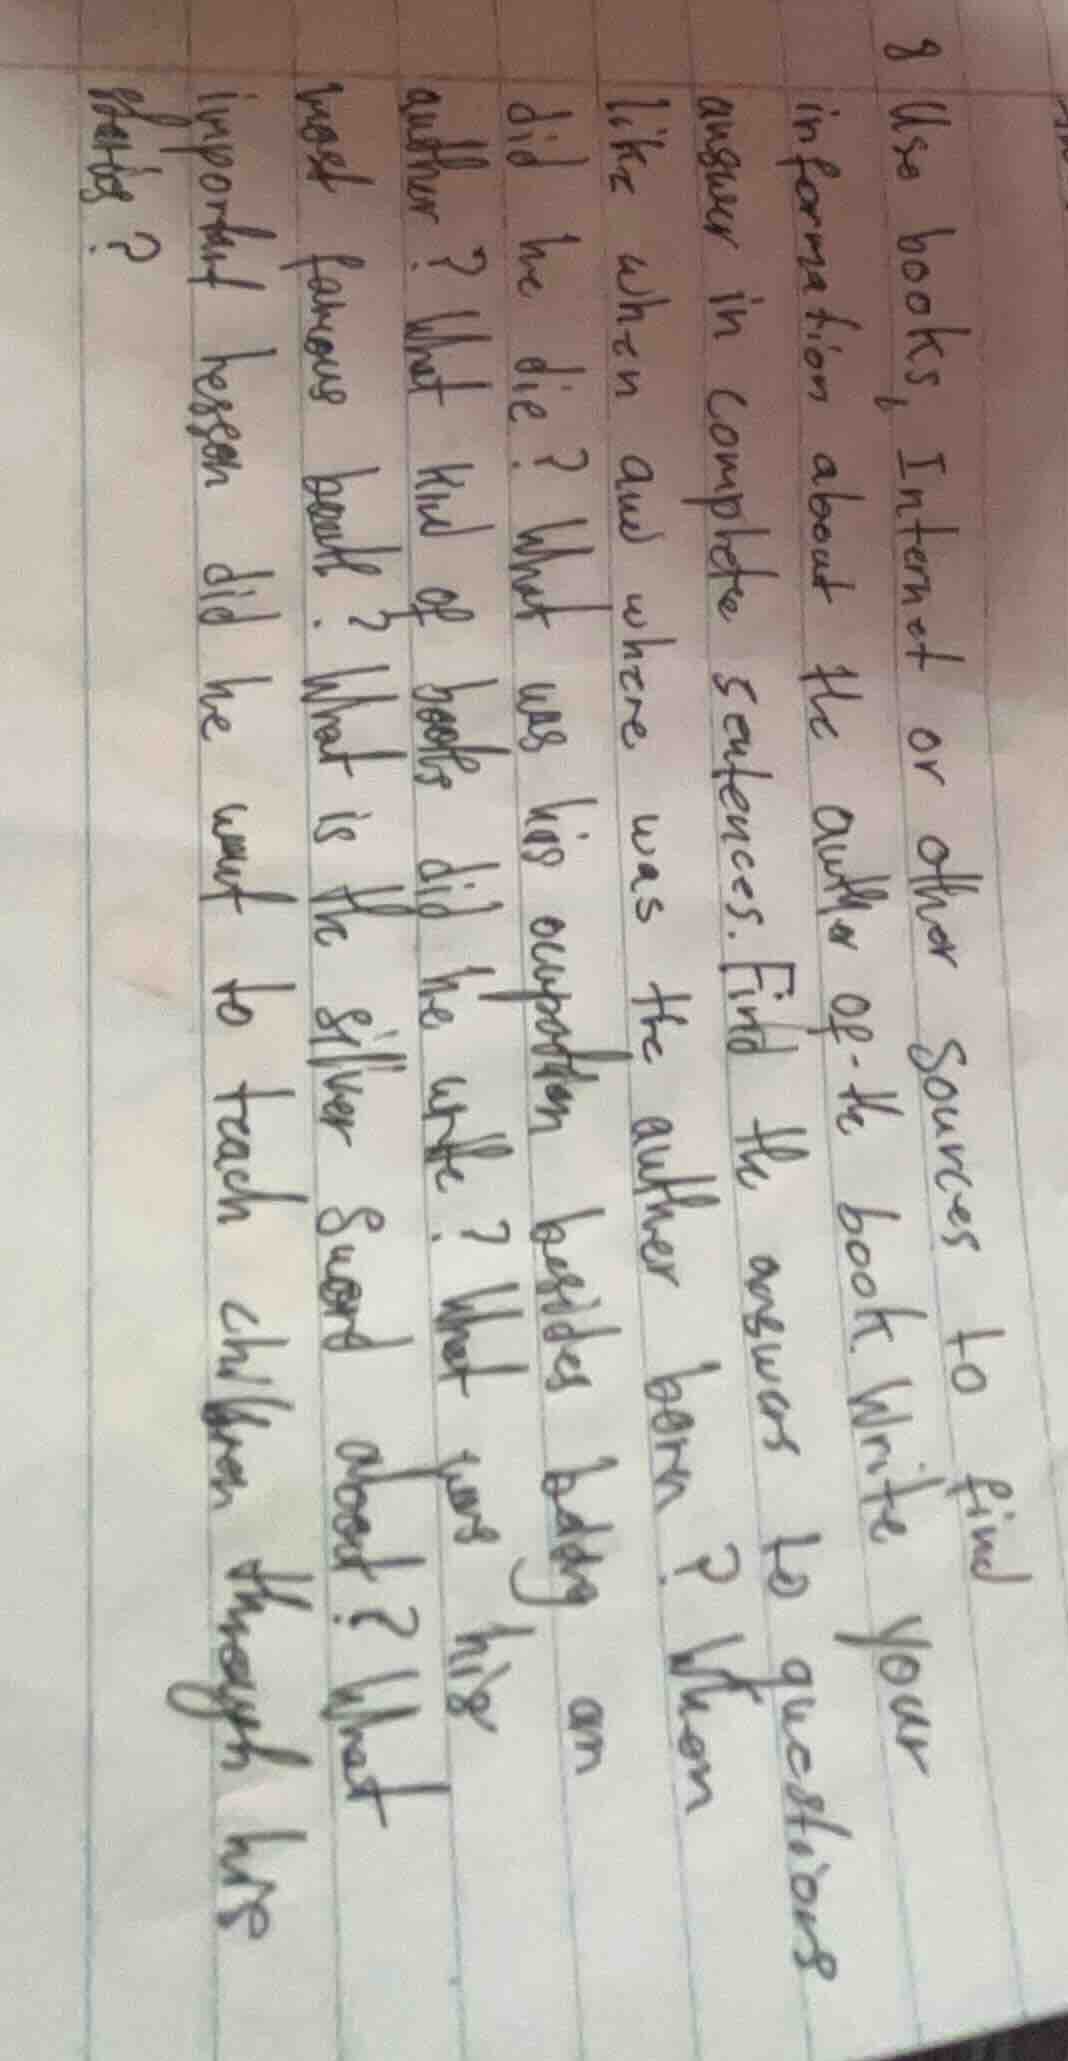 8 Use books, Internet or other sources to find
information about the author of the book. Write your
answer in complete sentences. Find the answers to questions
like when and where was the author born? When
did he die? What was his occupation besides being an
author? What kind of books did he write? What was his
most famous book? What is the silver Sword about? What
important lesson did he want to teach children through his